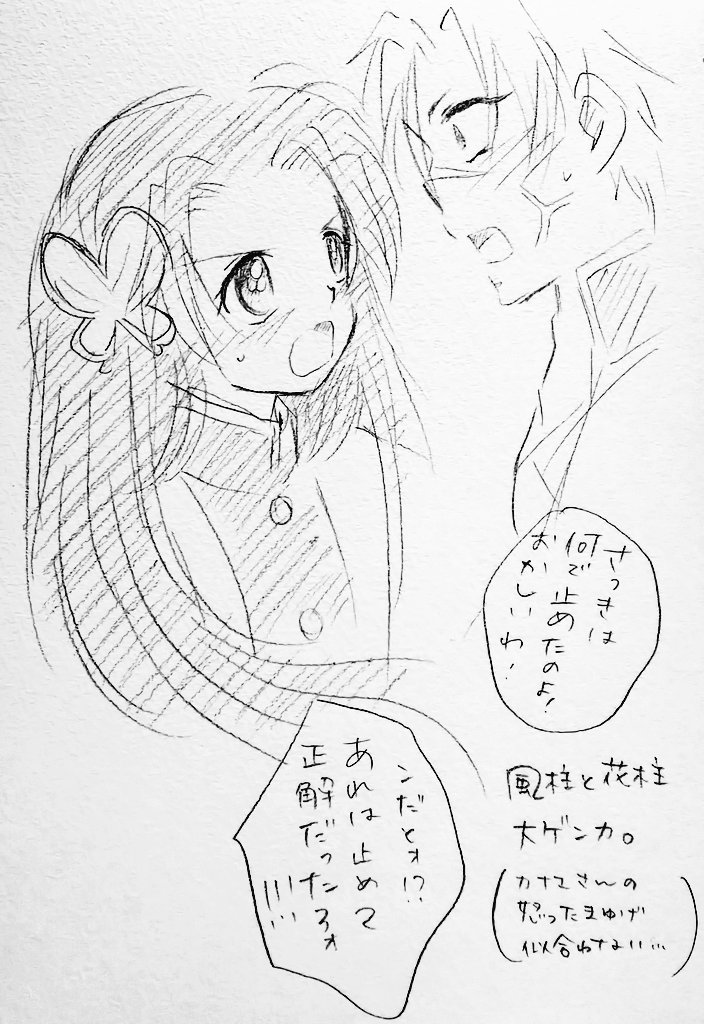 さっきは
何で止めたのよ!
おかしいわ!
ンだとォ!?
あれは止めて
正解だったろォ
!!!!
風柱と花柱
大ゲンカ。
(カナエさんの
怒ったまゆげ
似合わない…)